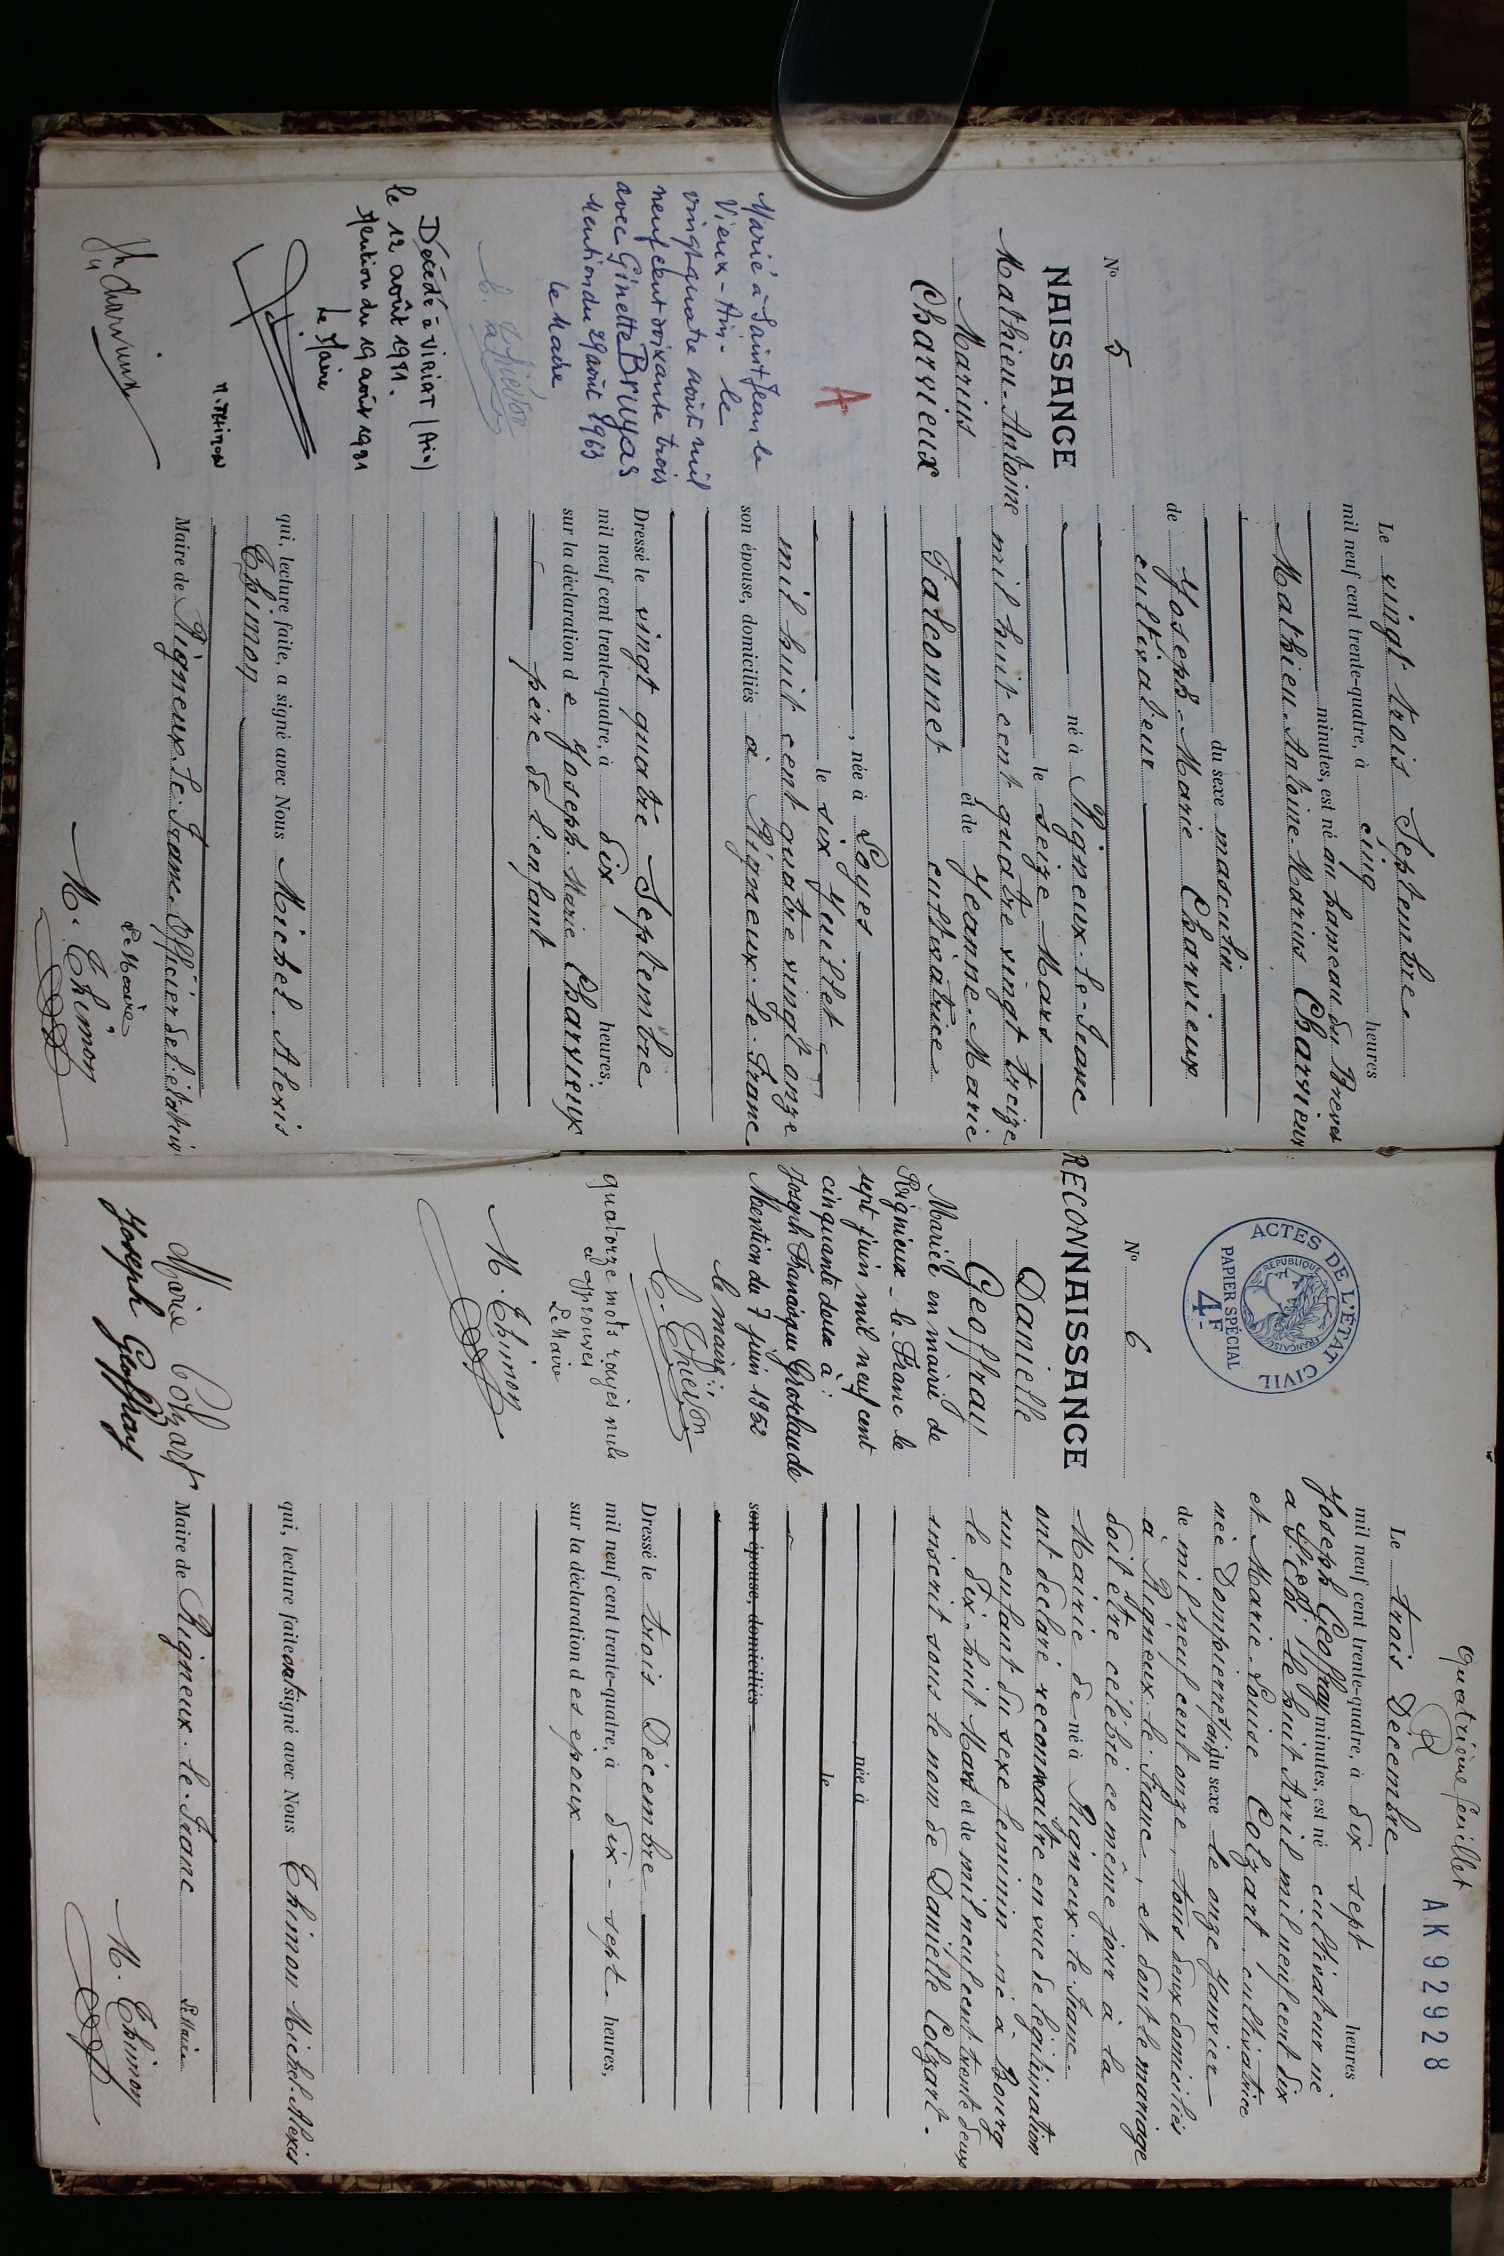 N° 5
NAISSANCE
Mathieu-Antoine
Marius
Charvieux
A
Marié à Saint Jean le
Vieux - Ain - le
vingt quatre août mil
neuf cent soixante trois
avec Ginette Bruyas
Mention du 29 août 1963
le Maire
Décédé à VIRIAT (Ain)
le 12 août 1981.
Mention du 19 août 1981
Le Maire
M. THIMON
Le vingt trois Septembre
mil neuf cent trente-quatre, à cinq heures
minutes, est né au hameau du Brevet
Mathieu-Antoine-Marius Charvieux
du sexe masculin
de Joseph-Marie Charvieux
cultivateur
né à Rigneux-le-Franc
le seize Mars
mil huit cent quatre vingt treize
et de Jeanne-Marie
Falconnet cultivatrice
, née à Loyes
le six Juillet
mil huit cent quatre vingt onze
son épouse, domiciliés à Rigneux-le-Franc
Dressé le vingt quatre Septembre
mil neuf cent trente-quatre, à dix heures,
sur la déclaration de Joseph-Marie Charvieux
père de l'enfant
qui, lecture faite, a signé avec Nous Michel-Alexis
Thimon
Maire de Rigneux-le-Franc-Officier de l'état civil
Le Maire
M. Thimon
Jh Charvieux
Quatrième feuillet
AK92928
ACTES DE L'ÉTAT CIVIL
RÉPUBLIQUE FRANÇAISE
PAPIER SPÉCIAL
4F
N° 6
RECONNAISSANCE
Danielle
Geoffray
Mariée en mairie de
Rignieux-le-Franc le
sept juin mil neuf cent
cinquante deux à :
Joseph François Grosclaude
Mention du 7 juin 1952
le maire :
quatorze mots rayés nuls
et approuvés
Le Maire
M. Thimon
Le trois Décembre
mil neuf cent trente-quatre, à dix sept heures
Joseph Geoffray minutes, est né cultivateur né
le huit Avril mil neuf cent dix
et Marie-Louise Colzart cultivatrice
née Dompierre (Ain) du sexe le onze Janvier
de mil neuf cent onze, tous deux domiciliés
à Rigneux-le-Franc, et dont le mariage
doit être célébré ce même jour à la
Mairie de né à Rigneux-le-Franc-
ont déclaré reconnaître en vue de légitimation
un enfant du sexe féminin né à Bourg
le dix-huit Mars et de mil neuf cent trente deux
inscrit sous le nom de Danielle Colzart.
née à
le
son épouse, domiciliés
Dressé le trois Décembre
mil neuf cent trente-quatre, à dix-sept- heures,
sur la déclaration des époux
qui, lecture faite ont signé avec Nous Thimon Michel-Alexis
Maire de Rigneux-le-Franc
Le Maire
M. Thimon
Marie Colzart
Joseph Geoffray